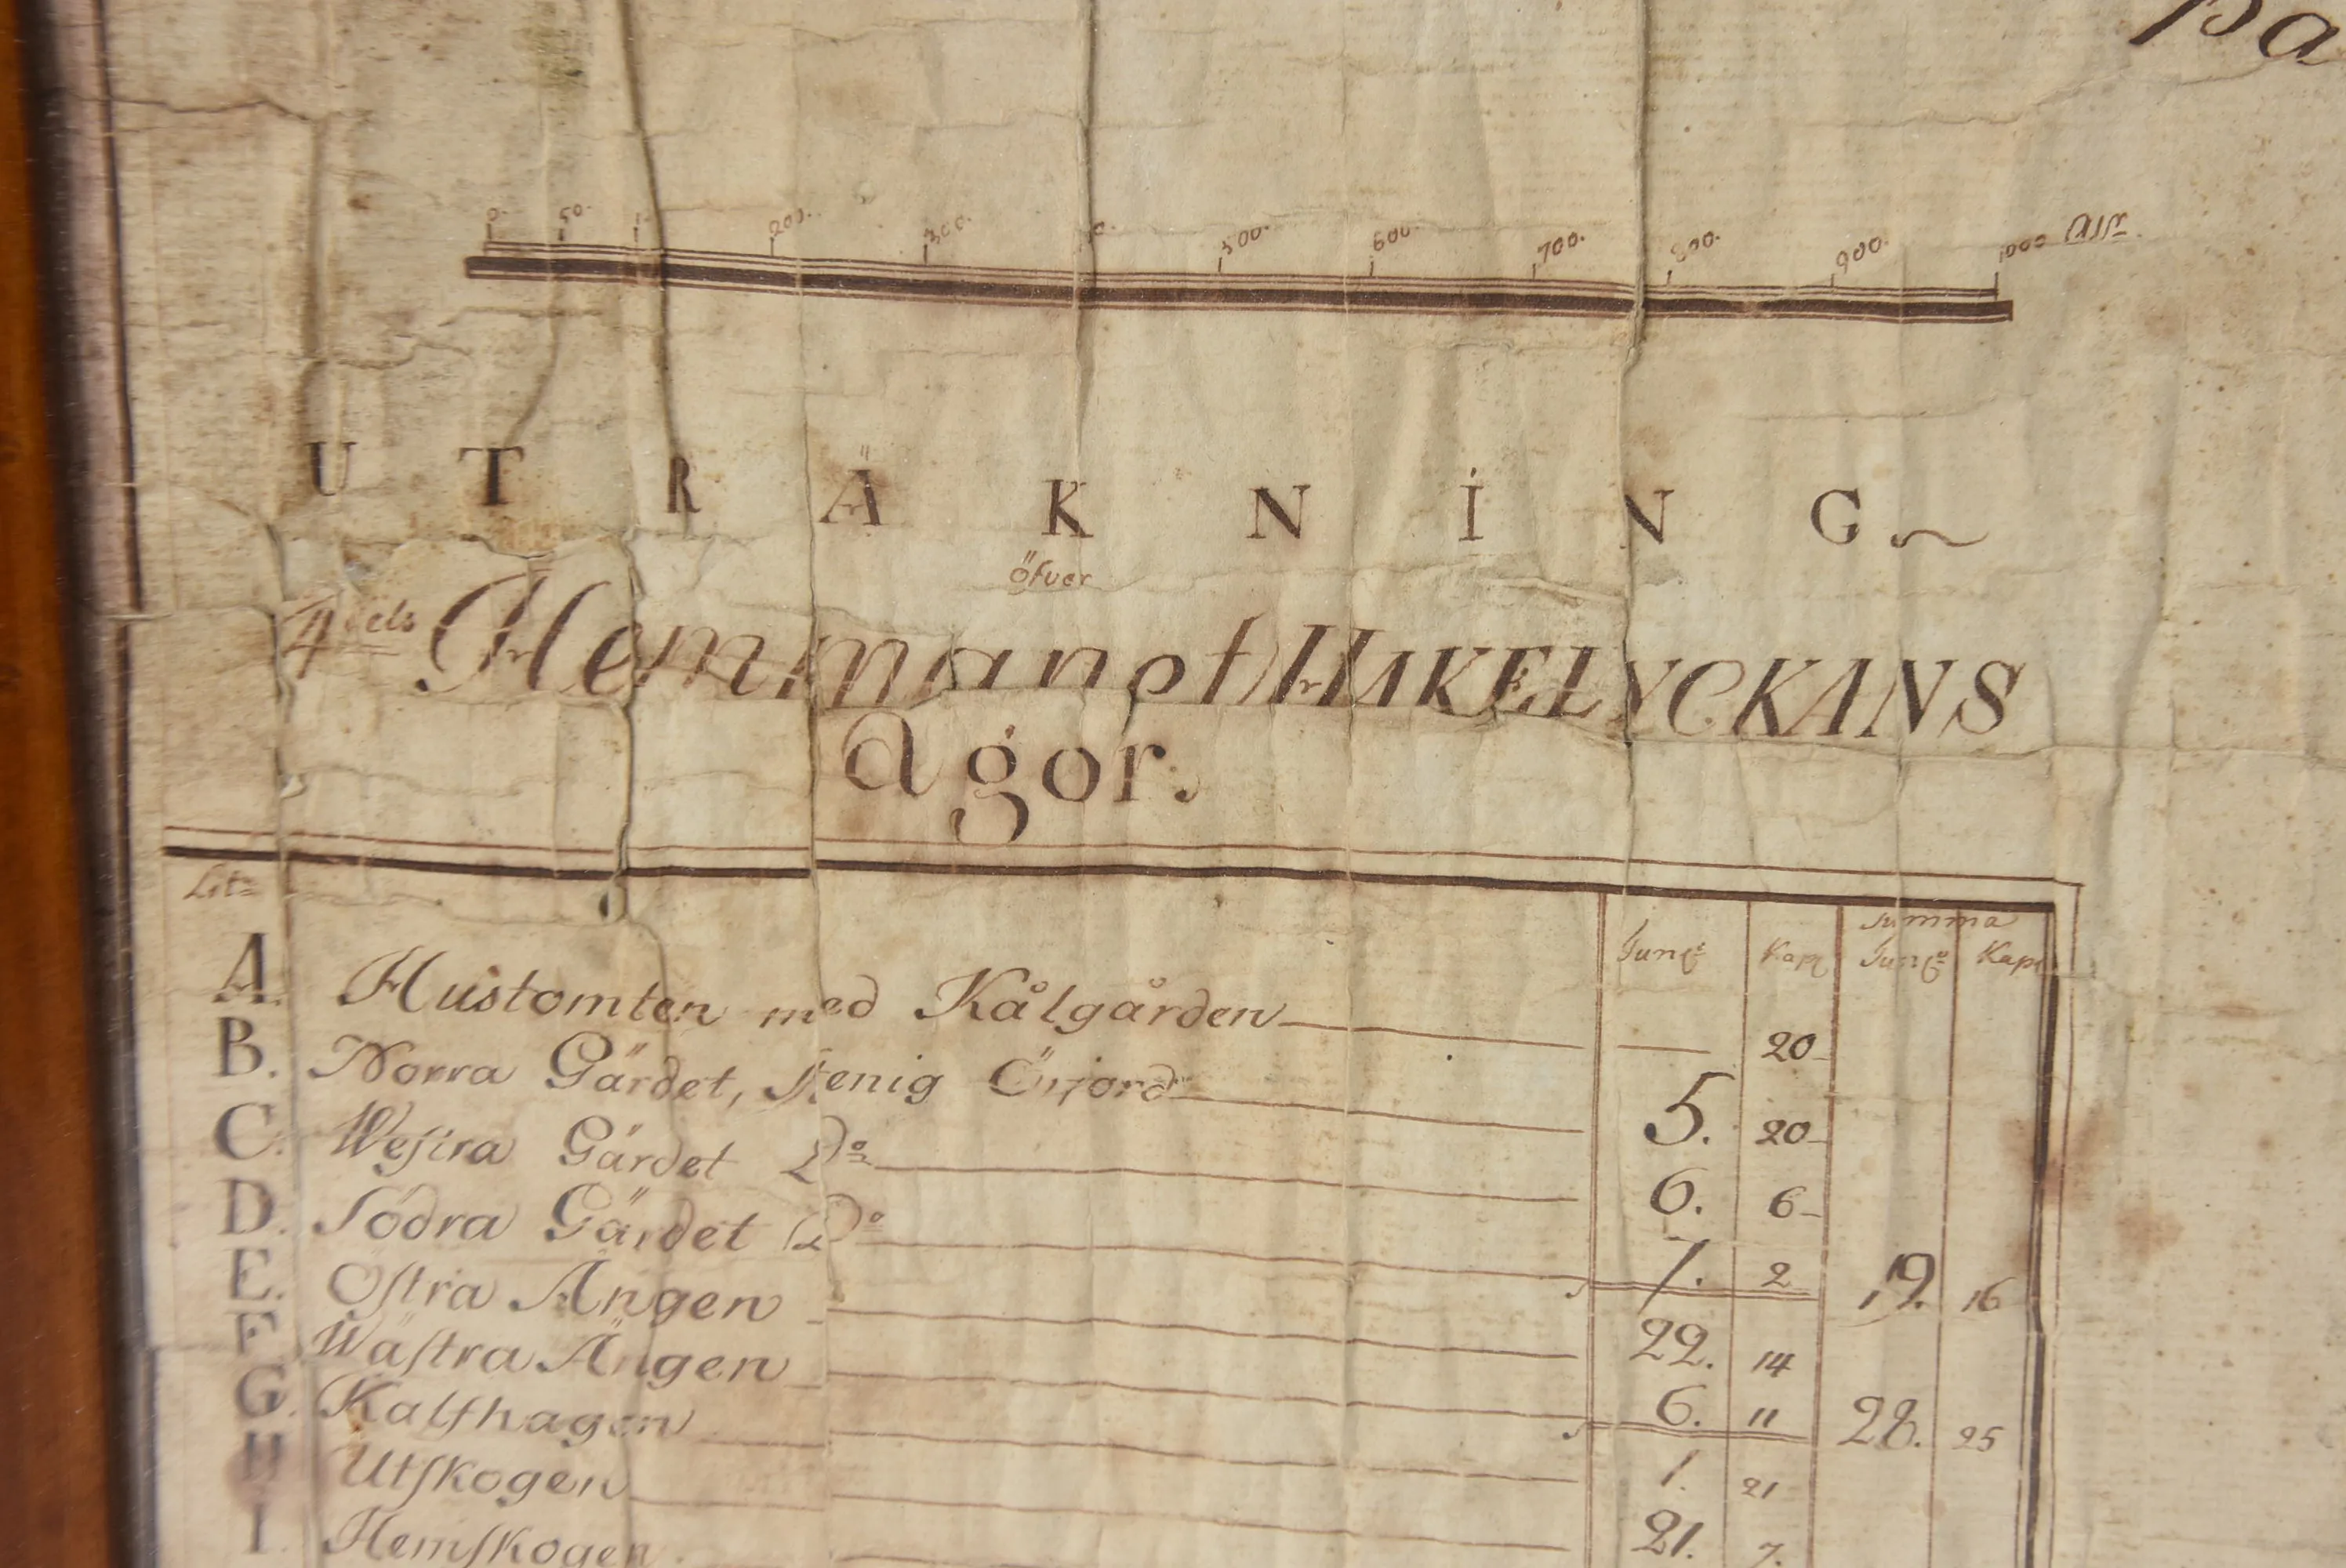 på
0. 50. 1 200. 300. 0. 500. 600. 700. 800. 900. 1000 Alnr
UTRÄKNING
öfver
4 dels Hemmanet HAKELYCKANS
ägor.
Lit:
Summa
Tunl: Kapl Tunl: Kapl
A. Hustomten med Kålgården — 20
B. Norra Gärdet, stenig Örjord 5. 20
C. Westra Gärdet Do 6. 6
D. Södra Gärdet Do 7. 2 19. 16
E. Östra Ängen 22. 14
F Wästra Ängen 6. 11 28. 25
G. Kalfhagen 1. 21
H Utskogen 21. 7.
I Hemskogen